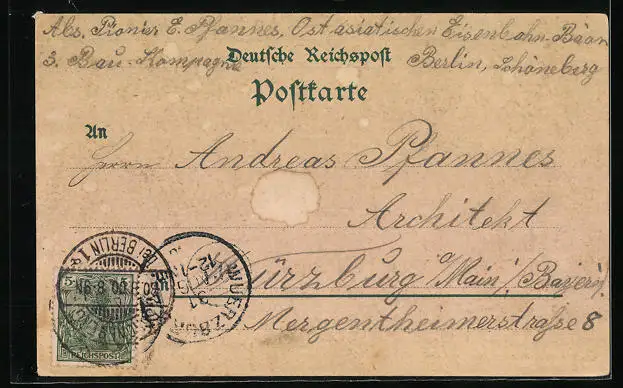 Abs. Pionier E. Pfannes, Ostasiatischen Eisenbahn-Baan
Deutsche Reichspost
3. Bau-Kompagnie Berlin, Schöneberg
Postkarte
An
Herrn Andreas Pfannes
Architekt
Würzburg a/Main (Bayern)
Mergentheimerstraße 8
bei BERLIN 1
WUERZBURG
5
REICHSPOST